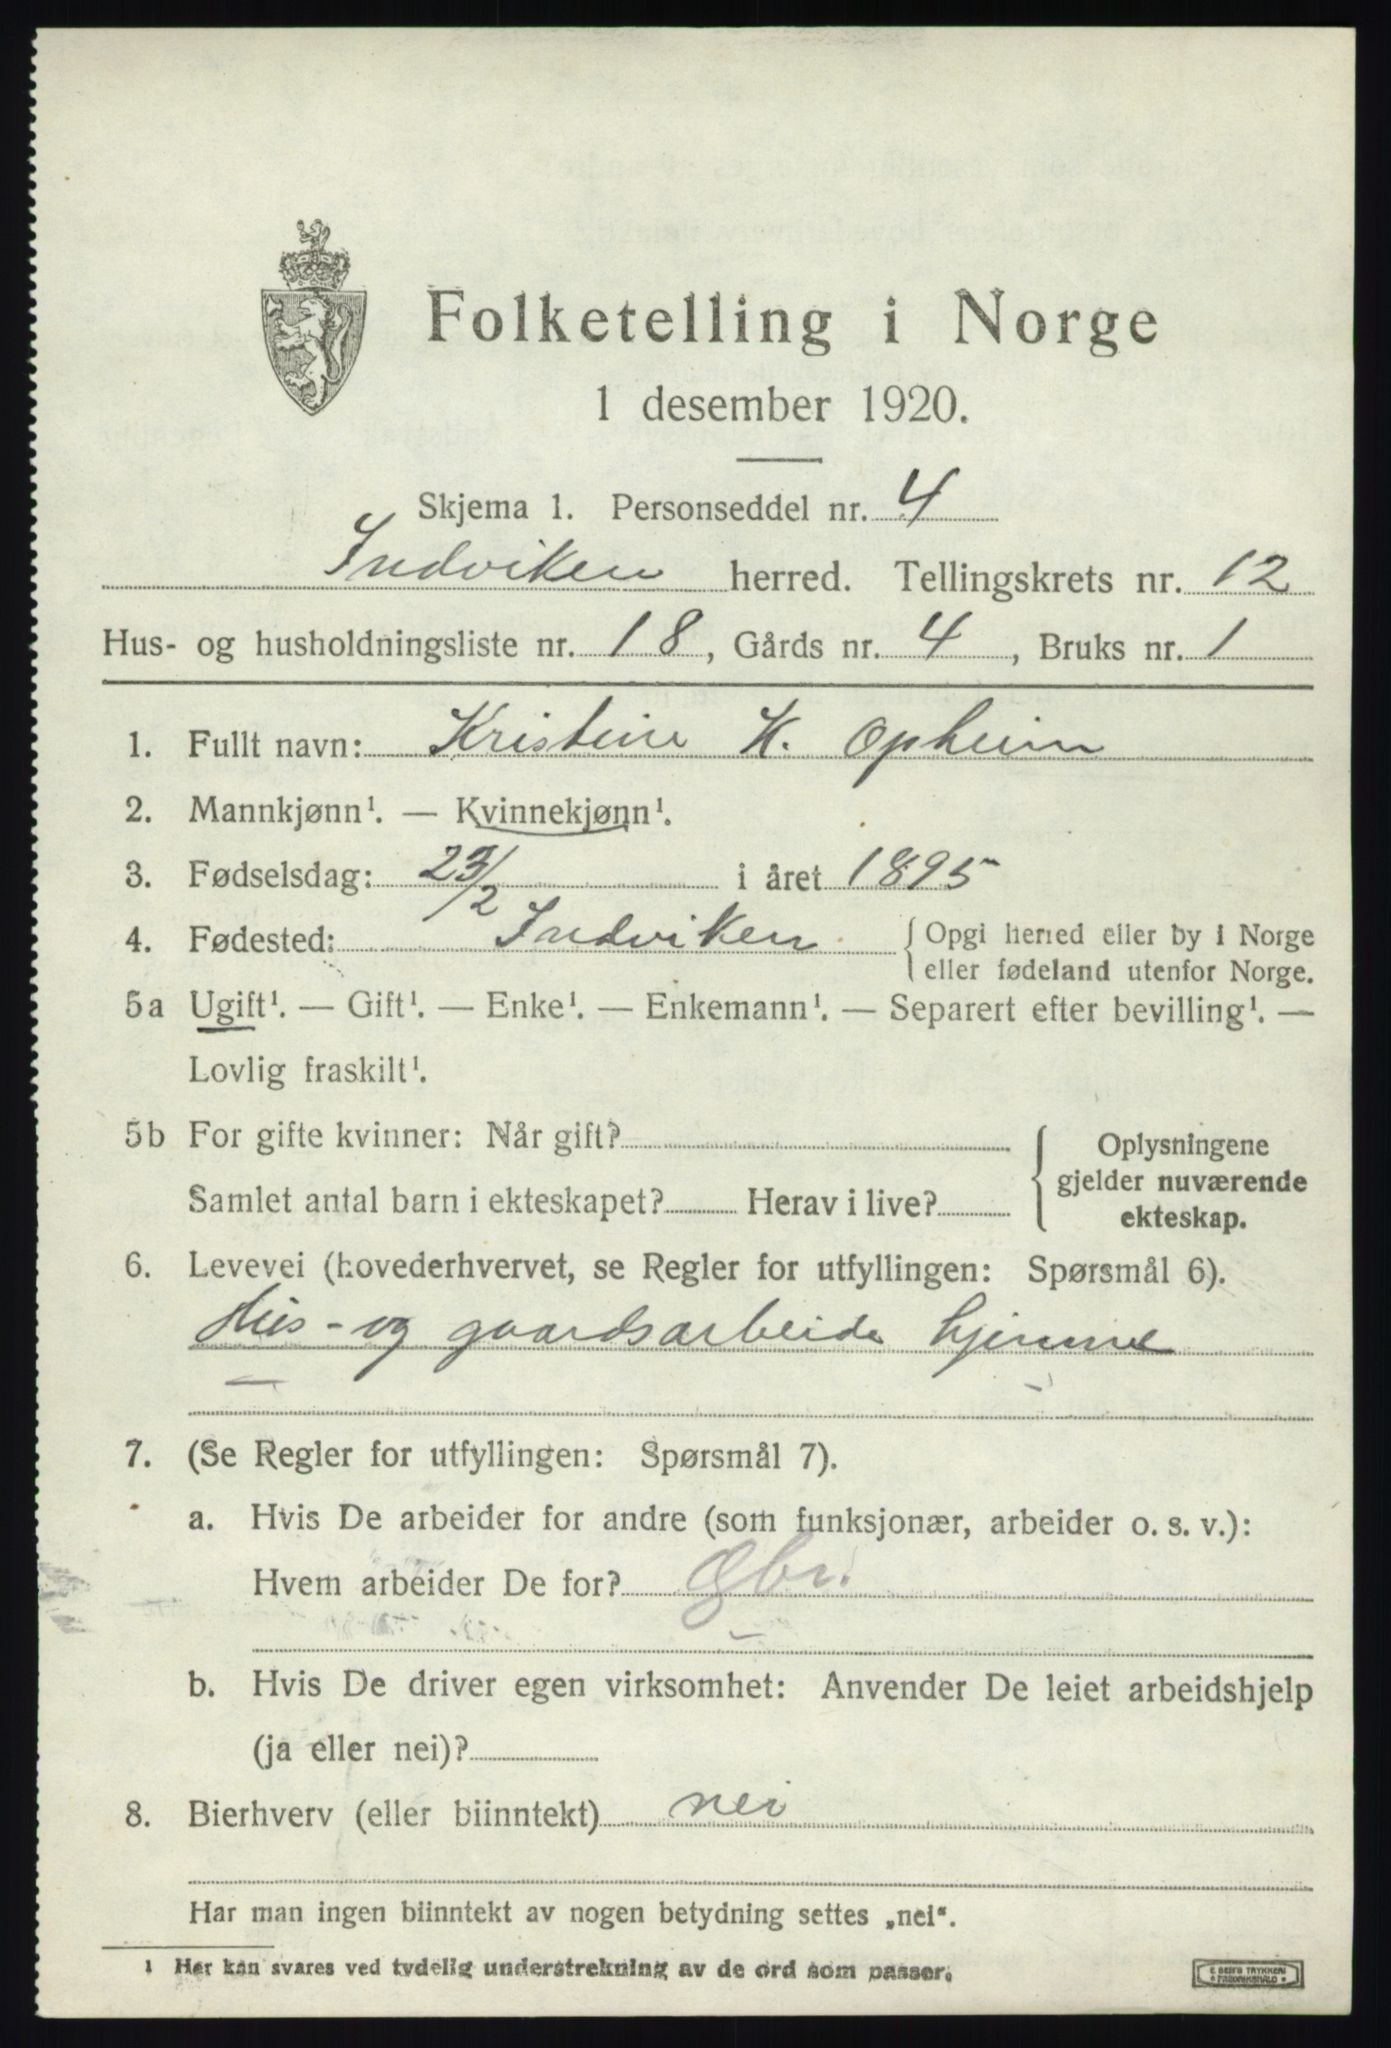 Folketelling i Norge
1 desember 1920.
Skjema 1. Personseddel nr. 4
Indviken herred. Tellingskrets nr. 12
Hus- og husholdningsliste nr. 18, Gårds nr. 4, Bruks nr. 1
1. Fullt navn: Kristine K. Opheim
2. Mannkjønn¹. — Kvinnekjønn¹.
3. Fødselsdag: 23/2 i året 1895
4. Fødested: Indviken {Opgi herred eller by i Norge
eller fødeland utenfor Norge.
5a Ugift¹. — Gift¹. — Enke¹. — Enkemann¹. — Separert efter bevilling¹. —
Lovlig fraskilt¹.
5b For gifte kvinner: Når gift? { Oplysningene
gjelder nuværende
Samlet antal barn i ekteskapet? Herav i live? ekteskap.
6. Levevei (hovederhvervet, se Regler for utfyllingen: Spørsmål 6).
Hus- og gaardsarbeide hjemme
7. (Se Regler for utfyllingen: Spørsmål 7).
a. Hvis De arbeider for andre (som funksjonær, arbeider o. s. v.):
Hvem arbeider De for? Gbr.
b. Hvis De driver egen virksomhet: Anvender De leiet arbeidshjelp
(ja eller nei)?
8. Bierhverv (eller biinntekt) nei
Har man ingen biinntekt av nogen betydning settes „nei“.
1 Her kan svares ved tydelig understrekning av de ord som passer.